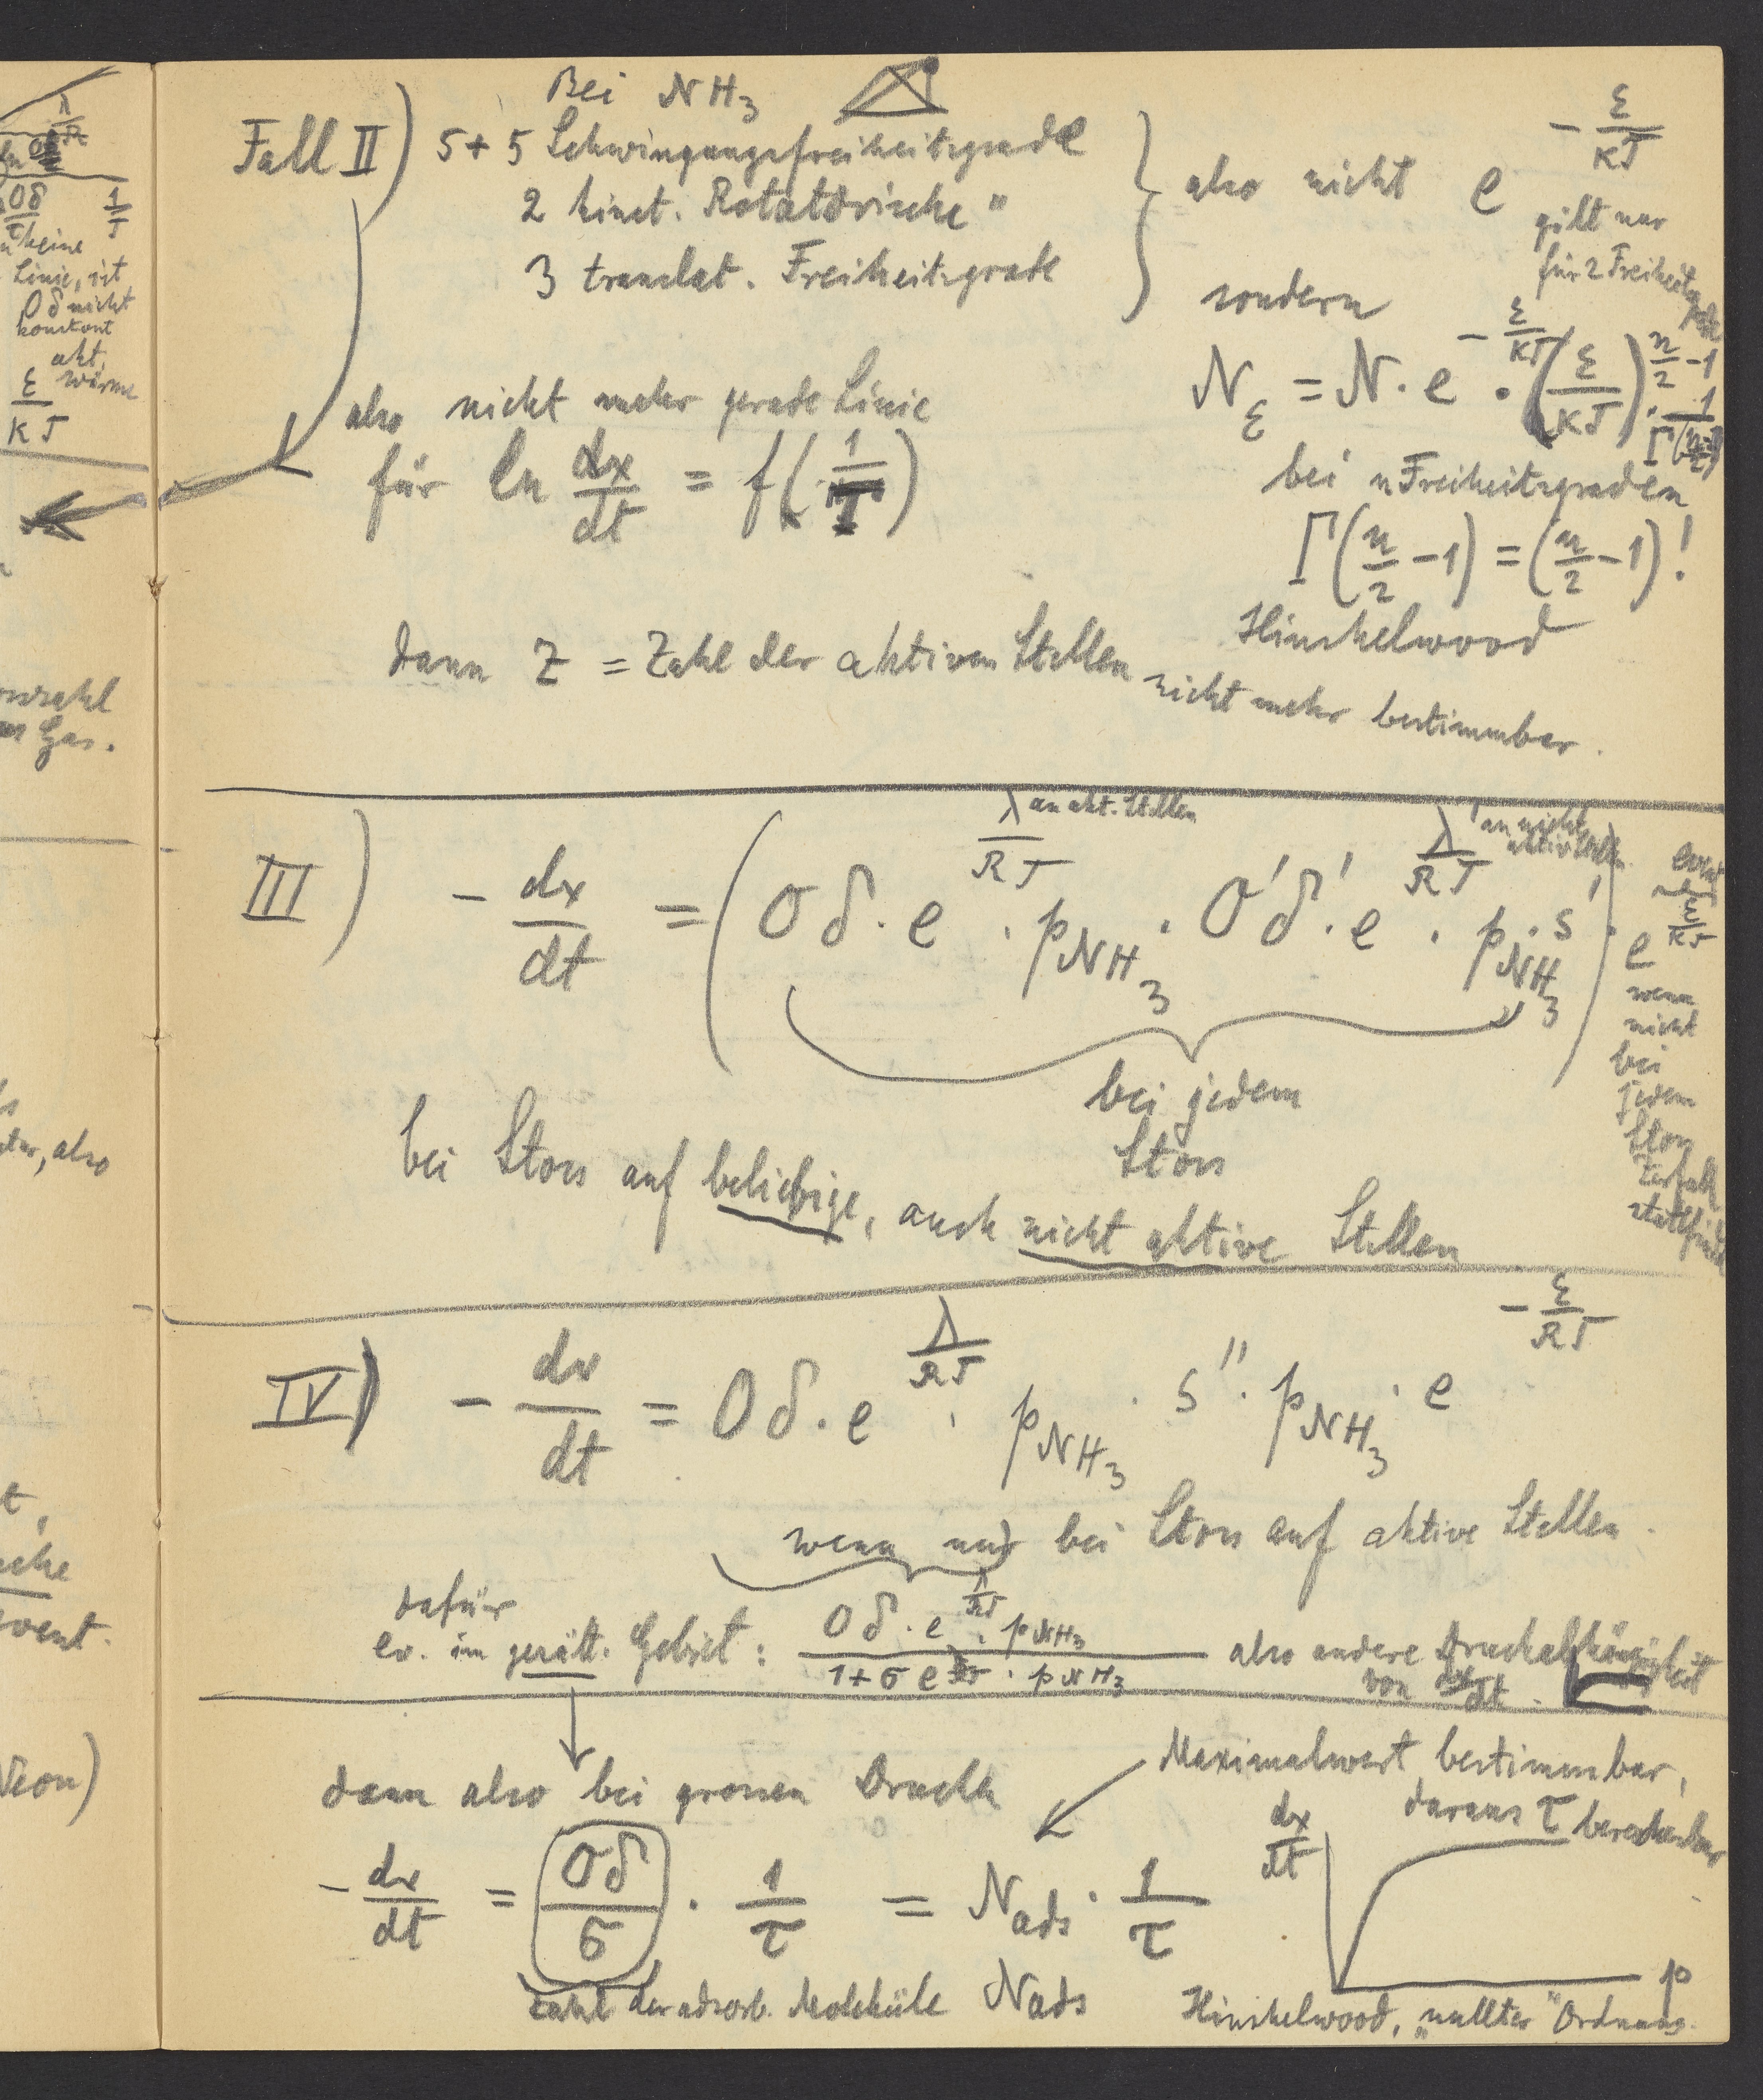 λ
0δ 1/T
keine
Linie, ist
0δ nicht
konstant
akt.
wärme
ε/KT
Gas.
also
event.
Neon)
Bei NH3
Fall II) 5 + 5 Schwingungsfreiheitsgrade
2 kinet. Rotatorische "
3 translat. Freiheitsgrade
also nicht e^(-ε/KT)
gilt nur
für 2 Freiheitsgrade
sondern
N_ε = N · e^(-ε/KT) · (ε/KT)^(n/2 - 1) · 1/Γ(n/2)
bei n Freiheitsgraden
Γ(n/2 - 1) = (n/2 - 1)!
Hinshelwood
also nicht mehr gerade Linie
für ln dx/dt = f(1/T)
dann Z = Zahl der aktiven Stellen nicht mehr bestimmbar.
III) - dx/dt = (0δ · e^(λ/RT) · p_NH3 · 0'δ' · e^(λ'/RT) · p_NH3 · s') · e^(-ε/KT)
an akt. Stellen
an nicht
aktiv. Stellen
event.
wenn
nicht
bei
jedem
Stoss
Zerfall
stattfindet
bei jedem
Stoss
bei Stoss auf beliebige, auch nicht aktive Stellen
IV) - dx/dt = 0δ · e^(λ/RT) · p_NH3 · s'' · p_NH3 · e^(-ε/RT)
wenn nur bei Stoss auf aktive Stellen.
dafür
ev. im gesätt. Gebiet: 0δ · e^(λ/RT) · p_NH3 / 1 + σ e^(λ/RT) · p_NH3 also andere Druckabhängigkeit
von dx/dt.
dann also bei grossen Drucken
Maximalwert bestimmbar,
daraus τ berechenbar
- dx/dt = 0δ/σ · 1/τ = N_ads · 1/τ
dx/dt
p
Zahl der adsorb. Moleküle N_ads
Hinshelwood, „nullter" Ordnung.